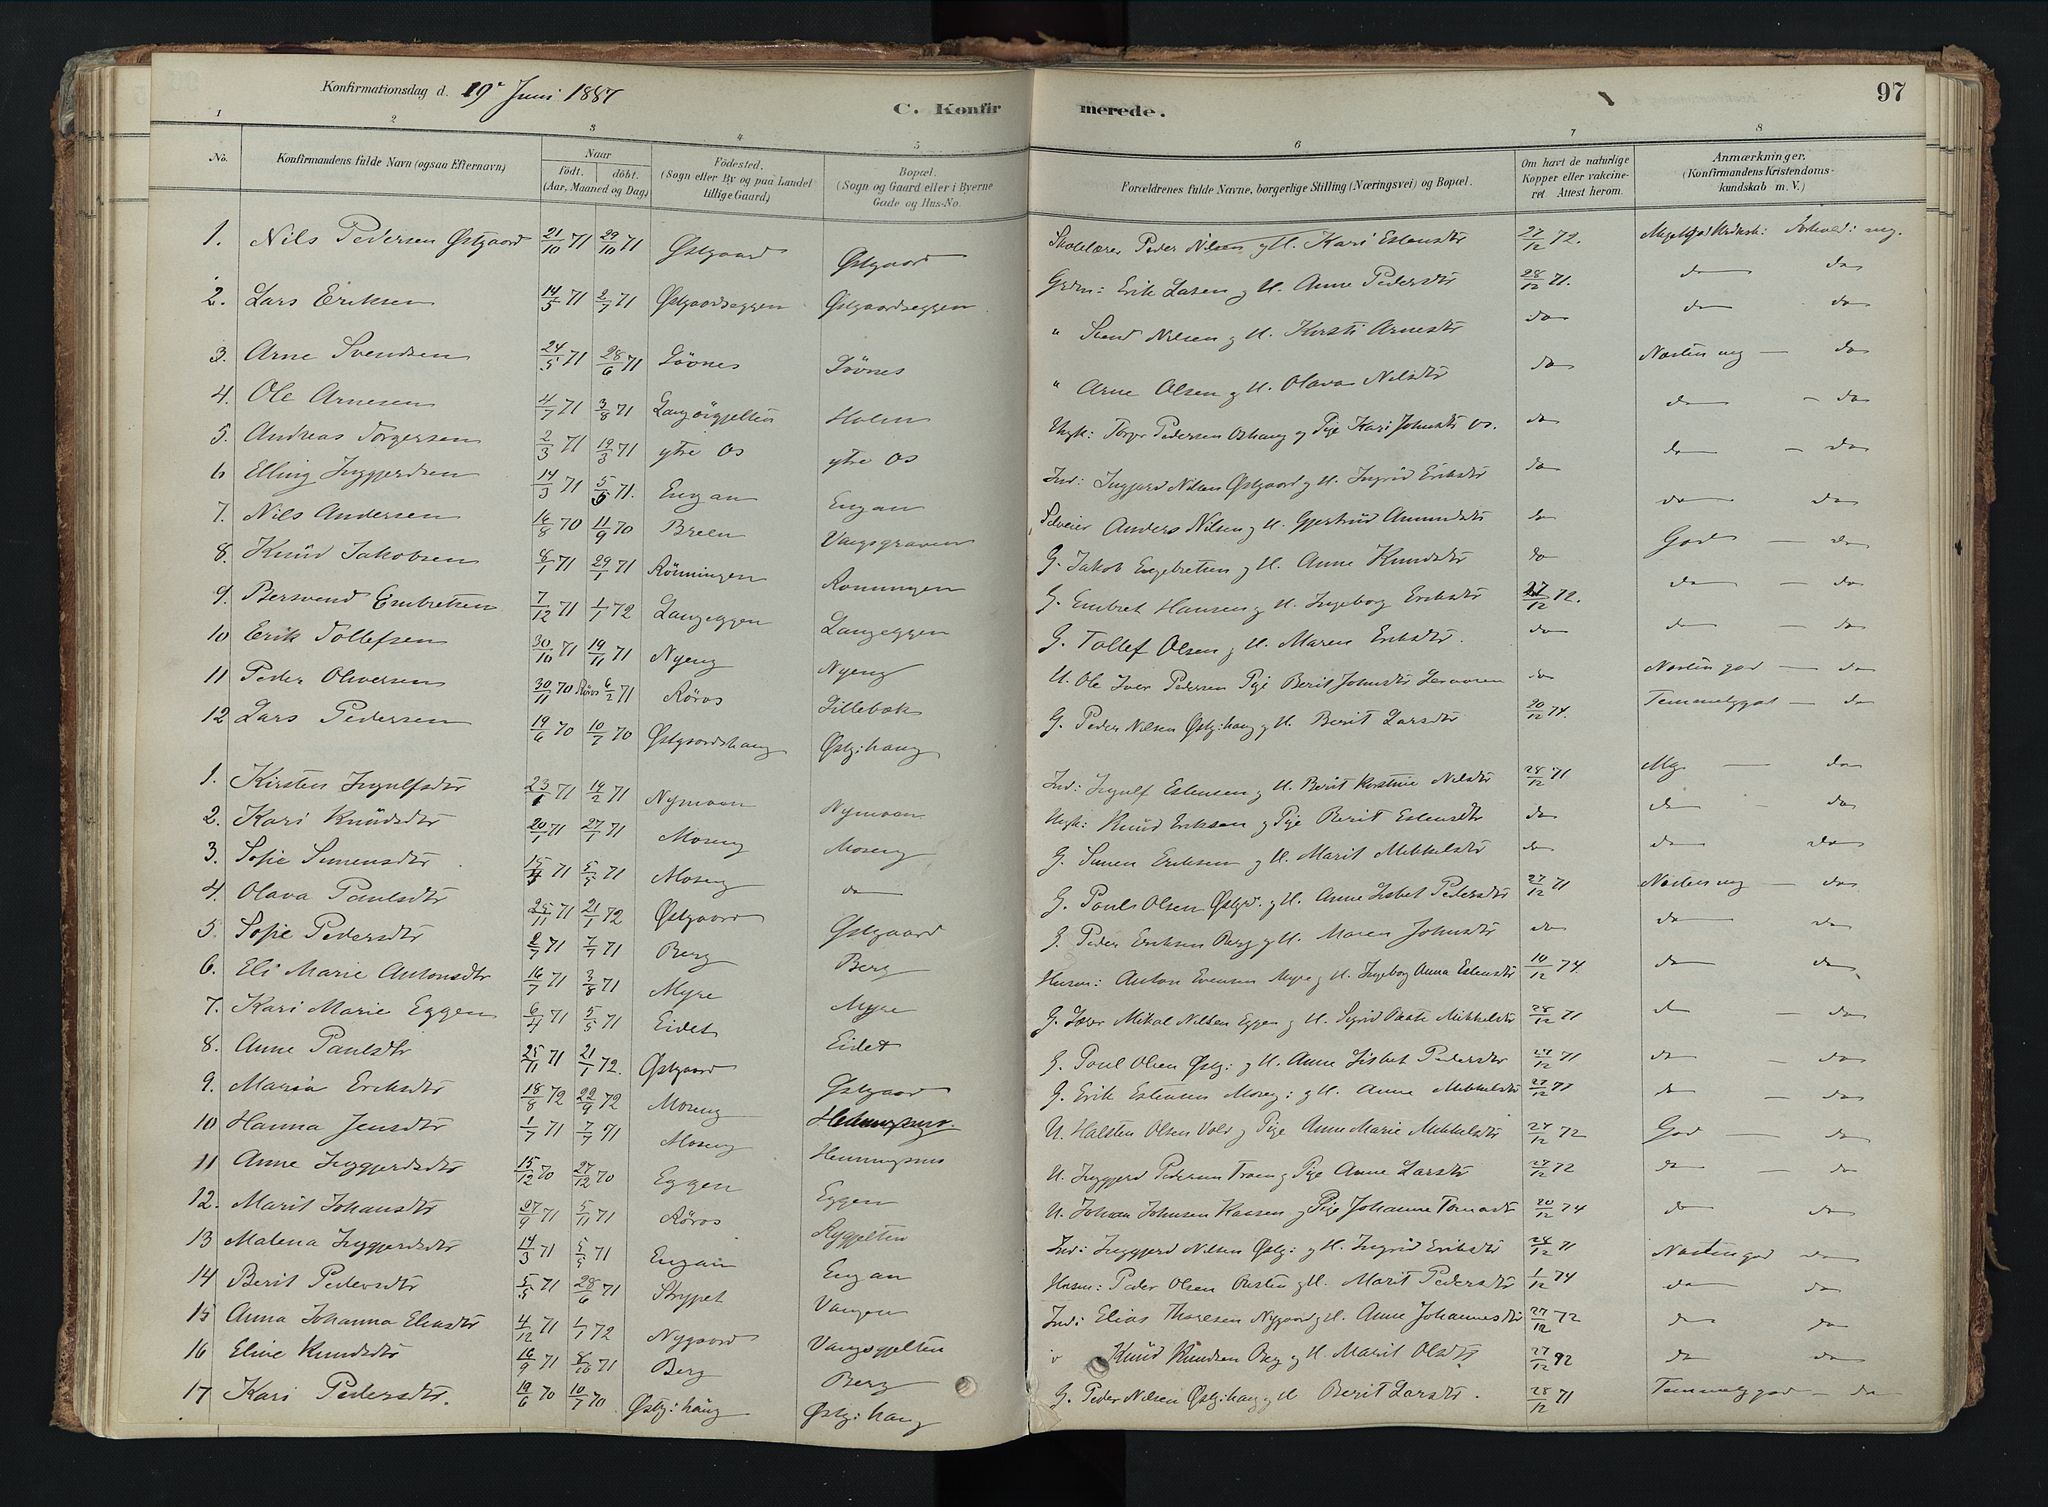 Konfirmationsdag d. 19de Juni 1887
C. Konfirmerede.
97
1 2 3 4 5 6 7 8
No. Konfirmandens fulde Navn (ogsaa Efternavn) Naar født. døbt. (Aar, Maaned og Dag) Fødested. (Sogn eller By og paa Landet tillige Gaard) Bopæl. (Sogn og Gaard eller i Byerne Gade og Hus-No. Forældrenes fulde Navne, borgerlige Stilling (Næringsvei) og Bopæl. Om havt de naturlige Kopper eller vakcineret. Attest herom. Anmærkninger. (Konfirmandens Kristendomskundskab m. V.)
1. Nils Pedersen Østgaard 21/10 71 29/10 71 Østgaard Østgaard Skolelærer Peder Nilsen og H. Kari Estensdtr 27/12 72.
2. Lars Eriksen 14/5 71 2/7 71 Østgaardseggen Østgaardseggen Grdm: Erik Larsen og H. Anne Pedersdtr 28/12 71. do do
3. Arne Svendsen 24/5 71 28/6 71 Løvnes Løvnes " Svend Nilsen og H. Kirsti Arnesdtr do do do
4. Ole Arnesen 4/7 71 3/8 71 Langørgjelten Holm " Arne Olsen og H. Olava Nilsdtr do Næsten mg – do
5. Andreas Torgersen 2/3 71 19/3 71 ytre Os ytre Os Ungk: Torger Pedersen Oshaug og Pige Kari Johnsdtr Os. do do – do
6 Elling Ingjerdsen 14/3 71 5/5 71. Engan Engan Ind: Ingjerd Nilsen Østgaard og H. Ingrid Eriksdtr do do – do
7. Nils Andersen 16/8 70 11/9 70 Breen Vangsgraven Selveier Anders Nilsen og H. Gjertrud Amundsdtr do do do
8. Knud Jakobsen 8/1 71 29/1 71 Rønningen Rønningen G. Jakob Engebretsen og H. Anne Knudsdtr do God – do
9. Bersvend Embretsen 7/12 71 1/1 72 Langeggen Langeggen G. Embret Hansen og H. Ingeborg Eriksdtr 27/12 72. do – do
10 Erik Tollefsen 30/10 71 19/11 71 Nyeng Nyeng G. Tollef Olsen og H. Maren Eriksdtr. do do – do
11 Peder Oliversen 30/11 70 Røros 6/2 71 Røros Lillebæk U. Ole Iver Pedersen Pige Berit Johnsdtr do Næsten god – do
12 Lars Pedersen 19/6 70 10/7 70 Østgaardshaug Østg:haug G. Peder Nilsen Østg:haug og H. Berit Larsdtr 20/12 74. Temmelig god – do
1. Kirsten Ingulfsdtr 23/1 71 19/2 71 Nymoen Nymoen Ind: Ingulf Estensen og H. Berit Kirstine Nilsdtr 28/12 71 Mg – do
2. Kari Knudsdtr 20/1 71 27/1 71 Moseng Moseng Ungk: Knud Eriksen og Pige Berit Estensdtr do do – do
3. Sofie Simensdtr 15/4 71 5/5 71 Moseng do G. Simen Eriksen og H. Marit Mikkelsdtr do do do
4. Olava Paulsdtr 25/11 71 21/1 72 Østgaard Østgaard G. Paul Olsen Østgd. og H. Anne Lisbet Pedersdtr 27/12 71 Næsten mg – do
5. Sofie Pedersdtr 2/7 71 7/7 71 Berg Berg G. Peder Eriksen Berg og H. Maren Johnsdtr do do do
6. Eli Marie Antonsdtr 16/7 71 3/8 71 Myre Myre Husm: Anton Evensen Myre og H. Ingeborg Anna Estensdtr 10/12 74. do do
7. Kari Marie Eggen 6/4 71 5/5 71 Eidet Eidet G. Lærer Mikal Nilsen Eggen og H. Sigrid Beate Mikkelsdtr 28/12 71 do – do
8. Anne Paulsdtr 25/11 71 21/1 72. Østgaard Østgaard G. Paul Olsen Østg: og H. Anne Lisbet Pedersdtr 27/12 71 do – do
9. Maria Eriksdtr 18/8 72 22/9 72 Moseng G. Erik Estensen Moseng: og H. Anne Mikkelsdtr 27/12 73 do – do
10 Hanna Jensdtr 1/7 71 7/7 71 Moseng U. Halsten Olsen Vols og Pige Anne Marie Mikkelsdtr 27/12 72 God – do
11 Anne Ingjerdsdtr 15/12 70 27/12 70 Eggen Eggen U. Inggjerd Pedersen Pige Anne Larsdtr 27/12 72 do – do
12. Marit Johansdtr 27/9 71 5/11 71 Røros Ryggjelten U. Johan Johnsen og Pige Johanne 20/12 74 do do
13 Malena Inggjerdsdtr 14/3 71 5/5 71 Engan Engan Ind: Inggjerd Nilsen Østg: og H. Ingrid Eriksdtr 28/12 71 Næsten god do
14 Berit Pedersdtr 5/5 71 28/6 71 Strypet Vangen Husm: Peder Olsen og H. Marit Pedersdtr 1/12 74 do do
15 Anna Johanna Eliasdtr 4/12 71 1/1 72 Nygaard Vangsgjelten Ind: Elias Thoresen Nygaard og H. Anne Johannesdtr 27/12 72 do do
16 Eline Knudsdtr 16/9 71 8/10 71 Berg Berg Knud Knudsen Berg og H. Marit Olsdtr 27/12 92 do do
17 Kari Pedersdtr. 19/6 70 10/7 70 Østg:haug Østg:haug G. Peder Nilsen Østg:haug og H Berit Larsdtr. 28/12 71 Temmelig god – do